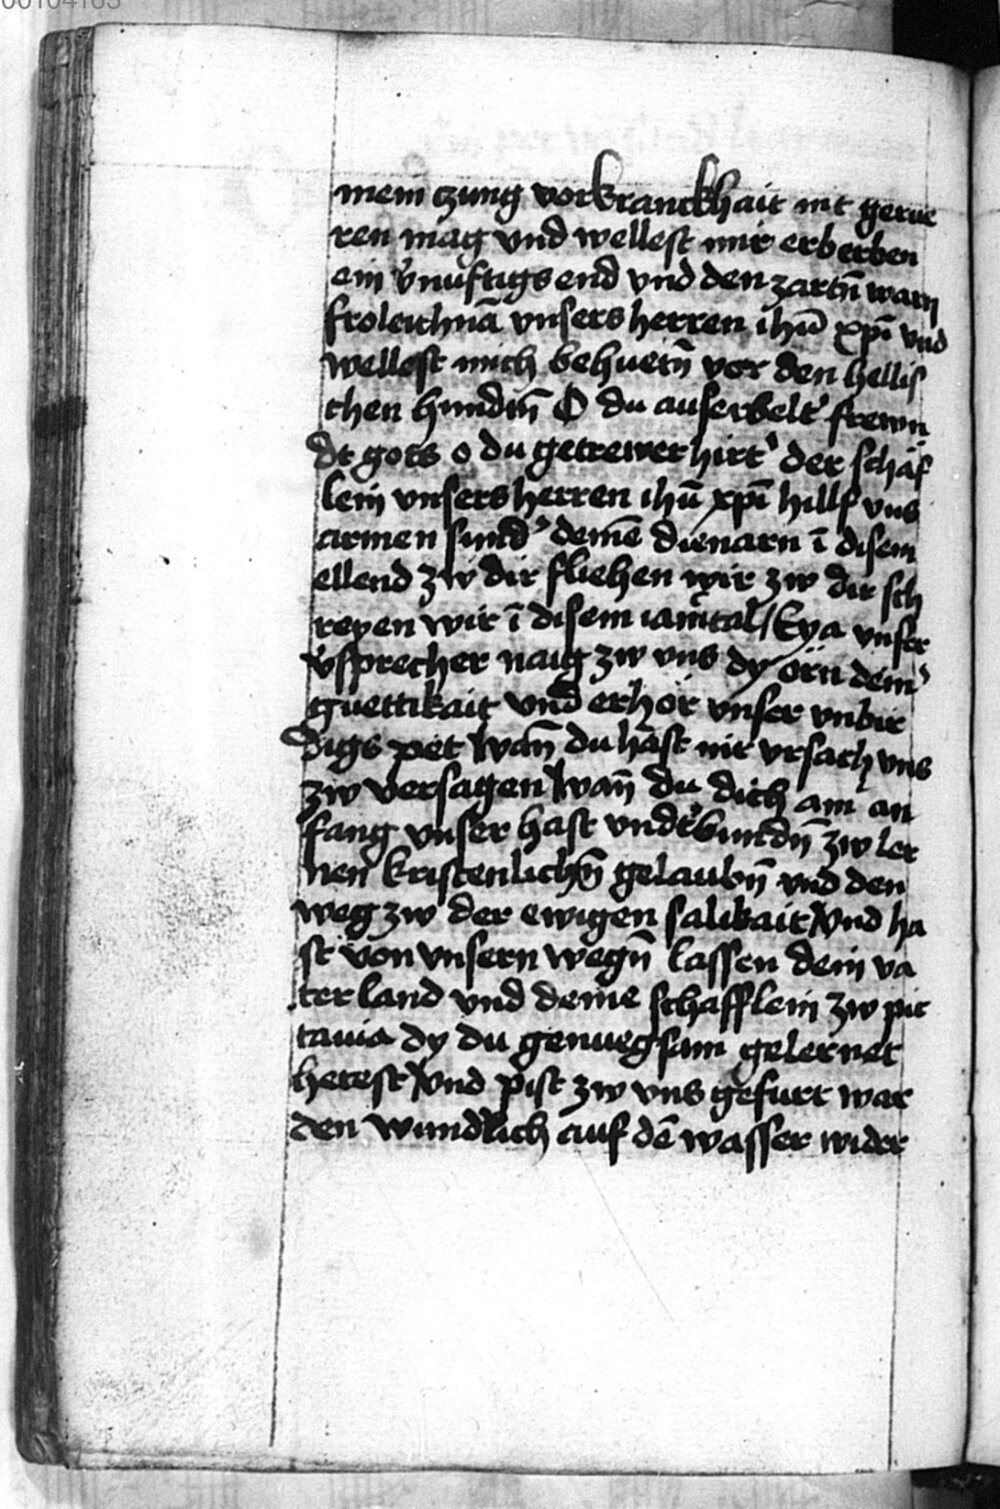 00104165
mein czung vor kranckhait nit gerue
ren mag vnd wellest mir erberben
ein v̄nuftigs end vnd den zartn̄ warn
froleichnā vnsers herren ihū xp̄i vnd
wellest mich behuetn̄ vor den hellis
chen hundn̄ O du auserbelt' frewn
dt gots o du getrewer hirt' der schaf
lein vnsers herren ihū xp̄i hillf vns
armen sund' deinē dienarn ī disem
ellend zw dir fliehen wir zw dir sch
reyen wir ī disem iam̄tal / Eya vnser
v̄sprecher naig zw vns dy örn dein'
guettikait vnd erhör vnser vnbir
digs pet wan̄ du hast nit vrsach vns
zw versagen wan̄ du dich am an
fang vnser hast vnd'bundn̄ zw ler
nen kristenlichn̄ gelaubn̄ vnd den
weg zw der ewigen salikait Vnd ha
st von vnsern wegn̄ lassen dein va
ter land vnd deine schafflein zw pic
tauia dy du genuegsam gelernet
hetest Vnd pist zw vns gefurt war
den wund'lich auf dē wasser wider